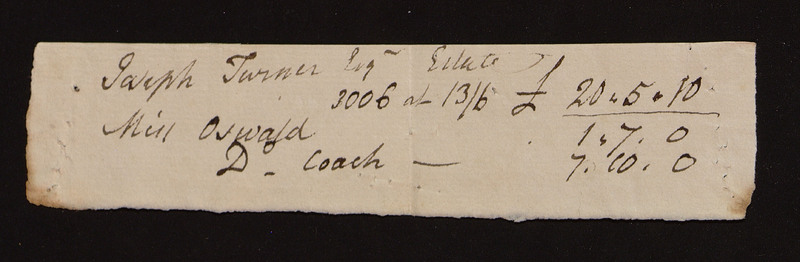 Joseph Turner Esqr Estate
3006 at 13/6 £ 20 " 5 " 10
Miss Oswald 1 " 7 . 0
Do - Coach — 7 . 10 . 0